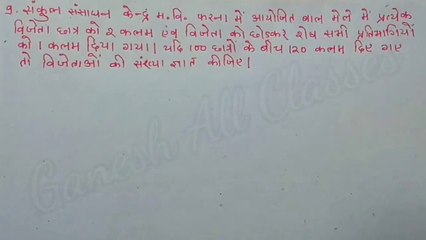 9. संकुल संसाधन केन्द्र म. वि. फरना में आयोजित बाल मेले में प्रत्येक
विजेता छात्र को 2 कलम एंव विजेता को छोडकर शेष सभी प्रतिभागियों
को 1 कलम दिया गया। यदि 100 छात्रों के बीच 120 कलम दिए गए
तो विजेताओं की संख्या ज्ञात कीजिए।
Ganesh All Classes